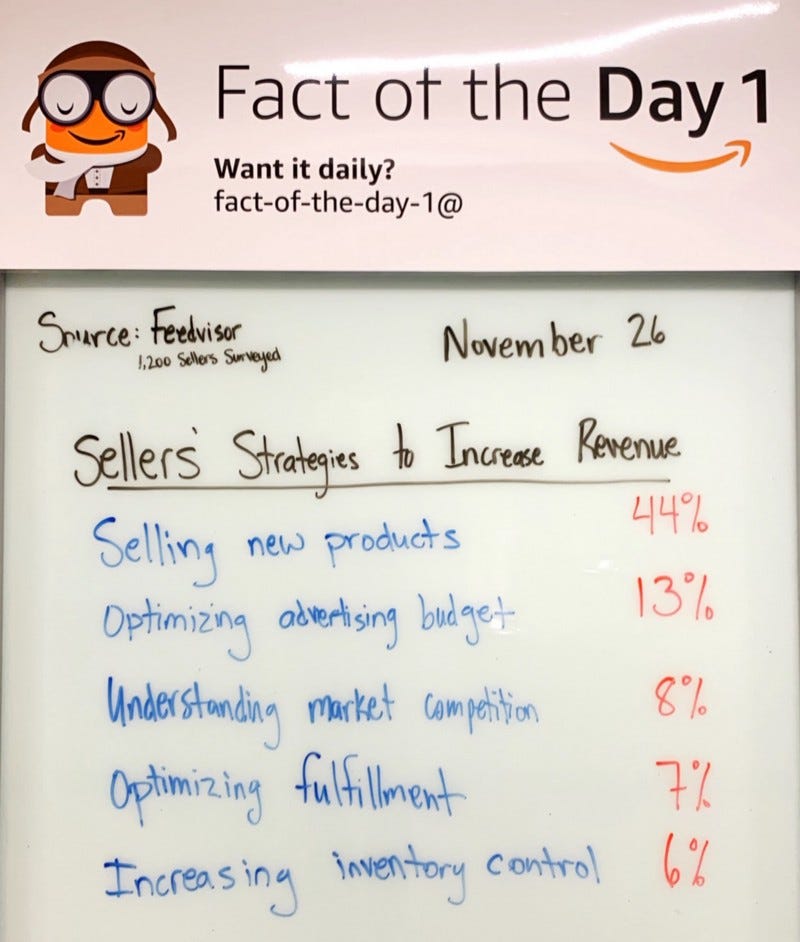 Fact of the Day 1
Want it daily?
fact-of-the-day-1@
Source: Feedvisor
1,200 Sellers Surveyed
November 26
Sellers' Strategies to Increase Revenue
Selling new products 44%
Optimizing advertising budget 13%
Understanding market competition 8%
Optimizing fulfillment 7%
Increasing inventory control 6%